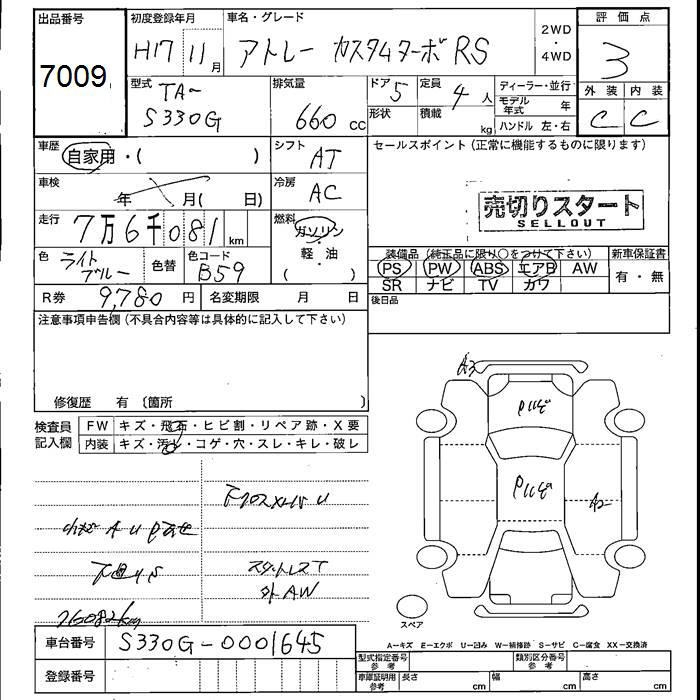 出品番号 初度登録年月 車名・グレード 2WD 評価点
7009 H17 11月 アトレー カスタムターボRS ・ 4WD 3
型式 TA- 排気量 ドア 5 定員 4人 ディーラー・並行 外装 内装
S330G 660cc 形状 積載 kg モデル年式 年 C C
ハンドル 左・右
車歴 自家用・( ) シフト AT セールスポイント(正常に機能するものに限ります)
車検 年 月( 日) 冷房 AC 売切りスタート
走行 7万6千081km 燃料 ガソリン SELLOUT
色 ライトブルー 色替 色コード B59 軽・油 ( ) 装備品(純正品に限り○をつけて下さい) 新車保証書
PS PW ABS エアB AW 有・無
R券 9,780円 名変期限 月 日 SR ナビ TV カワ
後日品
注意事項申告欄(不具合内容等は具体的に記入して下さい)
修復歴 有 〔箇所 〕
A3
Pハゼ
Pハゼ
A2
検査員 FW キズ・飛石・ヒビ割・リペア跡・X要
記入欄 内装 キズ・汚れ・コゲ・穴・スレ・キレ・破レ
AU
スタットレスT
外AW
76082km
スペア
車台番号 S330G-0001645
A-キズ E-エクボ U-凹み W-補修跡 S-サビ C-腐食 XX-交換済
登録番号 型式指定番号 参考 類別区分番号 参考
車庫証明用 参考 長さ cm 幅 cm 高さ cm